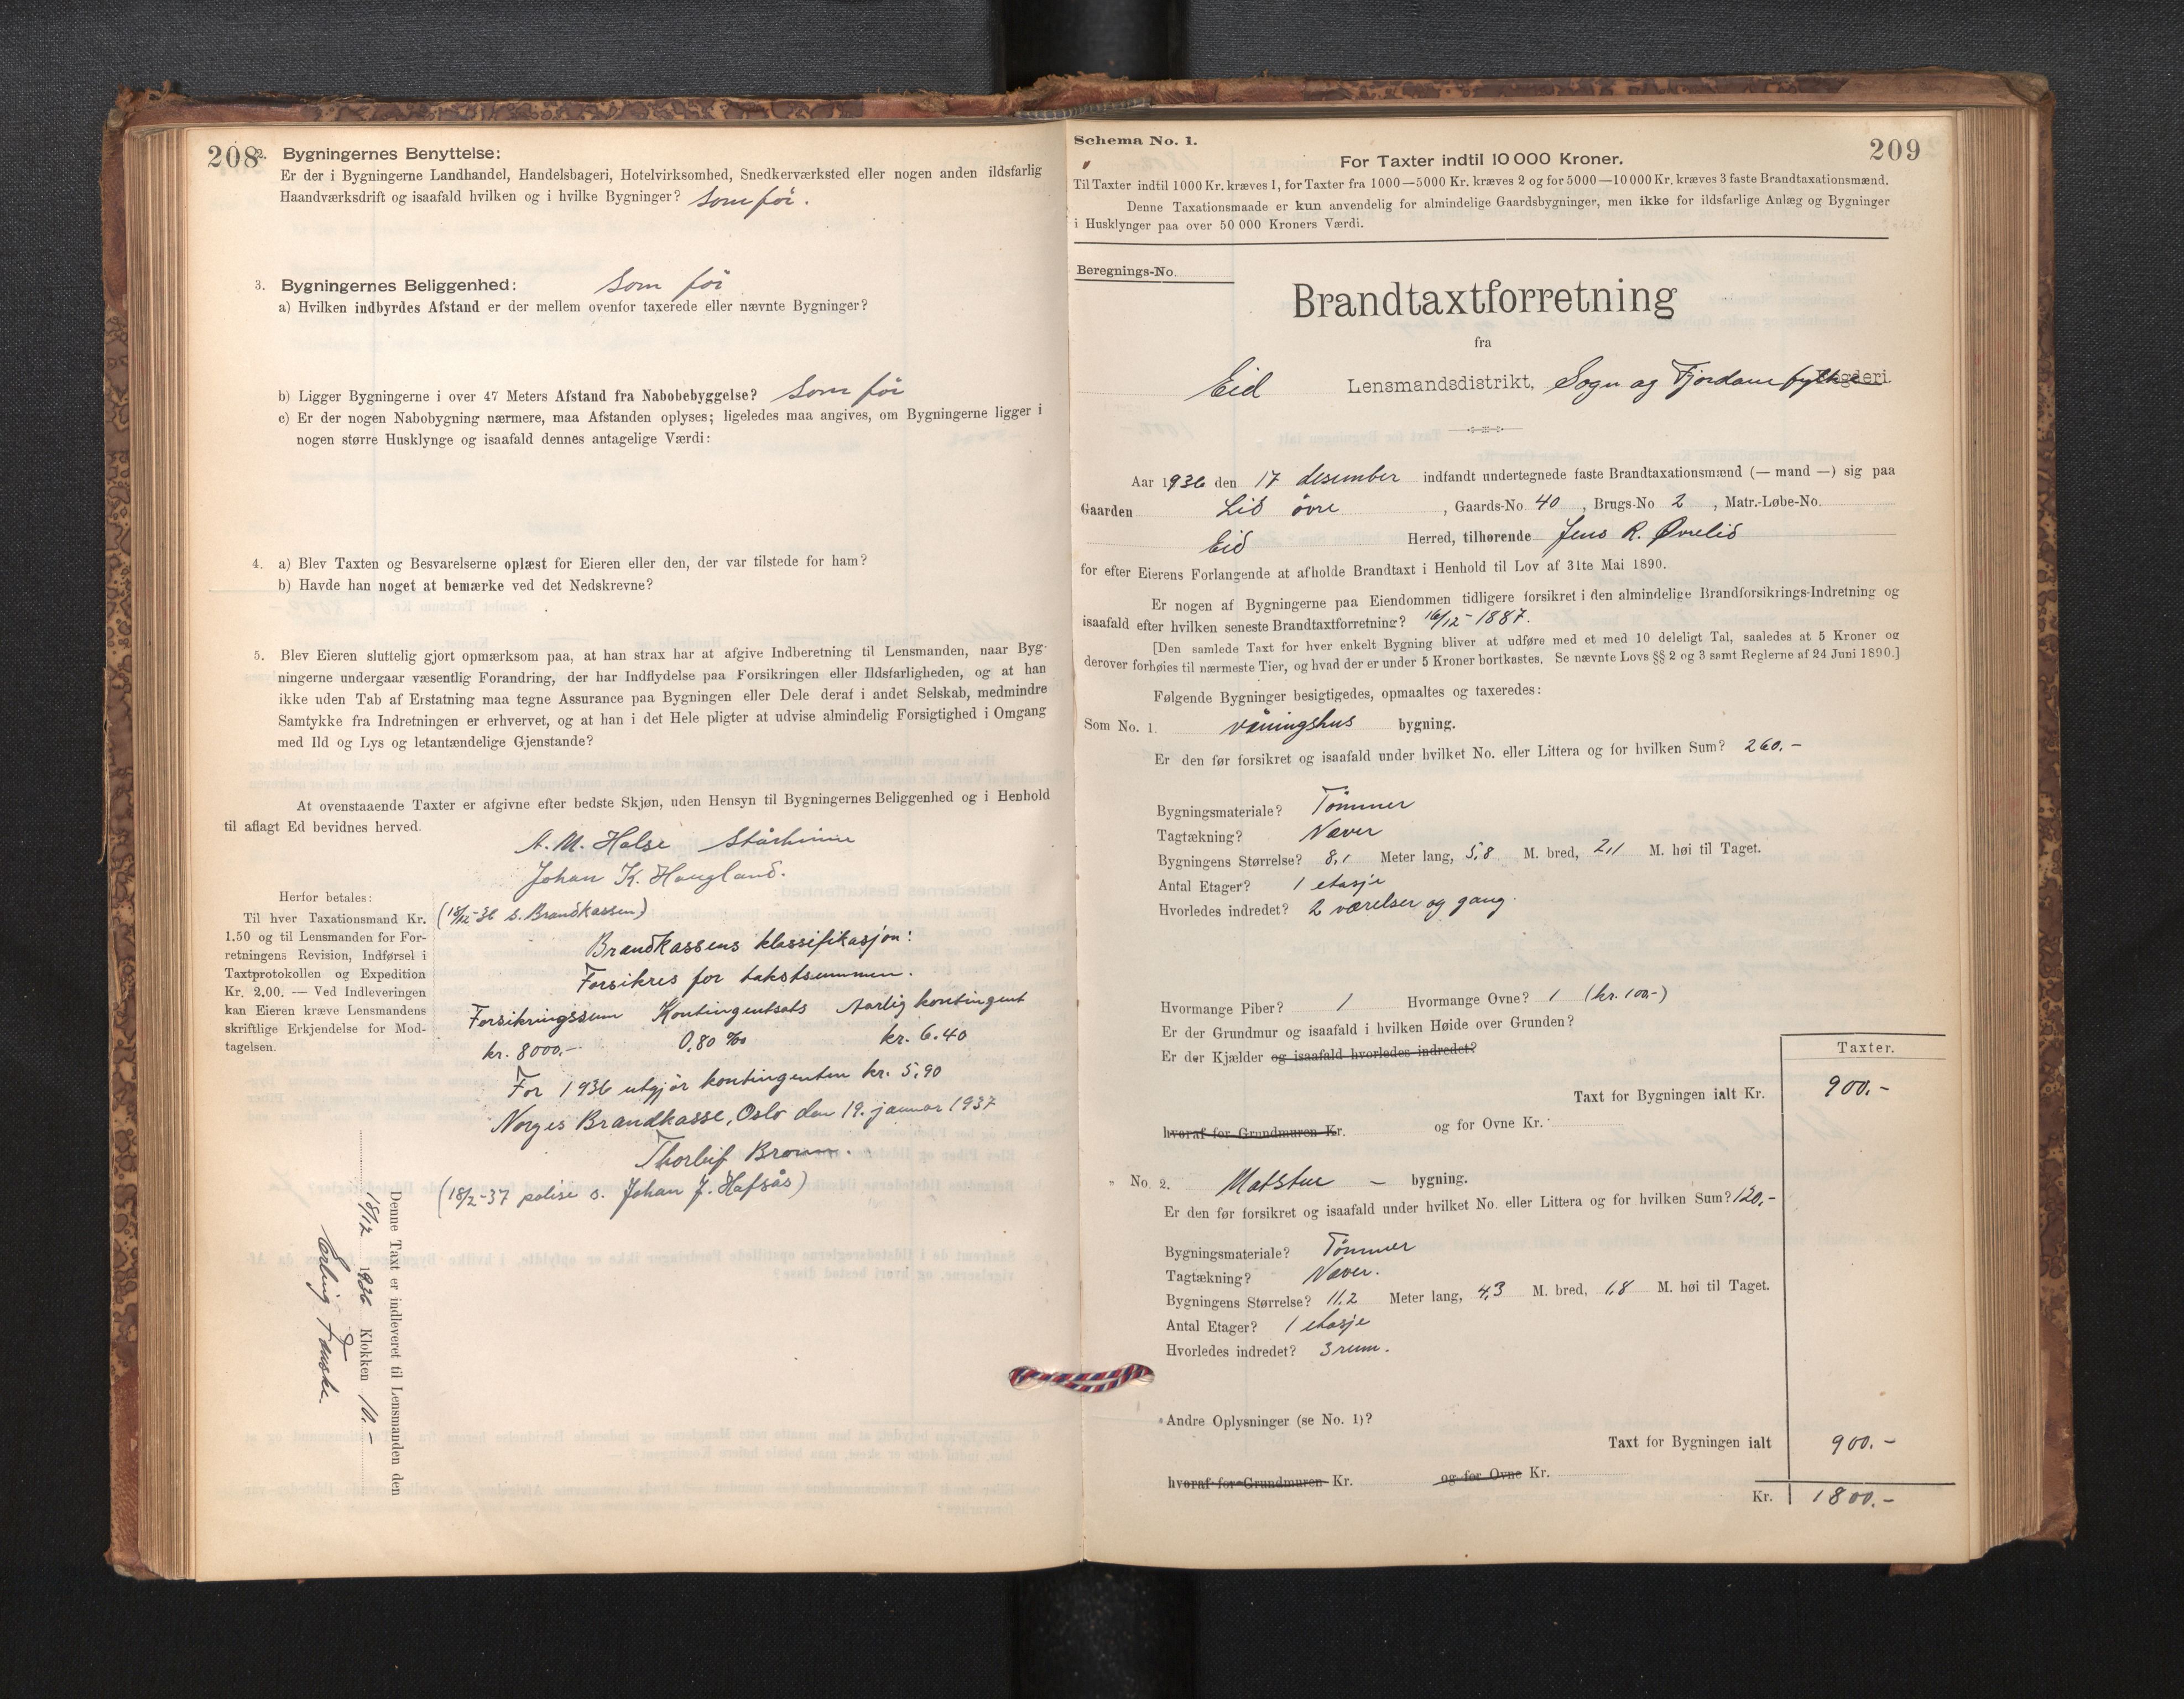 208
2. Bygningernes Benyttelse:
Er der i Bygningerne Landhandel, Handelsbageri, Hotelvirksomhed, Snedkerværksted eller nogen anden ildsfarlig
Haandværksdrift og isaafald hvilken og i hvilke Bygninger? Som før.
3. Bygningernes Beliggenhed: Som før
a) Hvilken indbyrdes Afstand er der mellem ovenfor taxerede eller nævnte Bygninger?
b) Ligger Bygningerne i over 47 Meters Afstand fra Nabobebyggelse? Som før
c) Er der nogen Nabobygning nærmere, maa Afstanden oplyses; ligeledes maa angives, om Bygningerne ligger i
nogen større Husklynge og isaafald dennes antagelige Værdi:
4. a) Blev Taxten og Besvarelserne oplæst for Eieren eller den, der var tilstede for ham?
b) Havde han noget at bemærke ved det Nedskrevne?
5. Blev Eieren sluttelig gjort opmærksom paa, at han strax har at afgive Indberetning til Lensmanden, naar Byg-
ningerne undergaar væsentlig Forandring, der har Indflydelse paa Forsikringen eller Ildsfarligheden, og at han
ikke uden Tab af Erstatning maa tegne Assurance paa Bygningen eller Dele deraf i andet Selskab, medmindre
Samtykke fra Indretningen er erhvervet, og at han i det Hele pligter at udvise almindelig Forsigtighed i Omgang
med Ild og Lys og letantændelige Gjenstande?
At ovenstaaende Taxter er afgivne efter bedste Skjøn, uden Hensyn til Bygningernes Beliggenhed og i Henhold
til aflagt Ed bevidnes herved.
A. M. Halse Stårheim
Johan K. Haugland.
(18/12-36 s. Brandkassen)
Herfor betales:
Til hver Taxationsmand Kr.
1.50 og til Lensmanden for For-
retningens Revision, Indførsel i
Taxtprotokollen og Expedition
Kr. 2.00. — Ved Indleveringen
kan Eieren kræve Lensmandens
skriftlige Erkjendelse for Mod-
tagelsen.
Brandkassens klassifikasjon:
Forsikres for takstsummen.
Forsikringssum Kontingentsats Aarlig kontingent
kr. 8000.- 0,80 ‰ kr. 6.40
For 1936 utgjør kontingenten kr. 5,90
Norges Brandkasse, Oslo den 19. januar 1937
Thorleif Broun.
(18/2-37 polise s. Johan J. Hafsås)
Denne Taxt er indleveret til Lensmanden den
18/12 1936 Klokken 10.-
Erling Fauske
209
Schema No. 1.
For Taxter indtil 10 000 Kroner.
Til Taxter indtil 1000 Kr. kræves 1, for Taxter fra 1000—5000 Kr. kræves 2 og for 5000—10 000 Kr. kræves 3 faste Brandtaxationsmænd.
Denne Taxationsmaade er kun anvendelig for almindelige Gaardsbygninger, men ikke for ildsfarlige Anlæg og Bygninger
i Husklynger paa over 50 000 Kroners Værdi.
Beregnings-No.
Brandtaxtforretning
fra
Eid Lensmandsdistrikt, Sogn og Fjordane fylke Fogderi.
Aar 1936 den 17 desember indfandt undertegnede faste Brandtaxationsmænd (— mand —) sig paa
Gaarden Lid øvre, Gaards-No 40, Brugs-No 2, Matr.-Løbe-No.
Eid Herred, tilhørende Jens R. Øvrelid
for efter Eierens Forlangende at afholde Brandtaxt i Henhold til Lov af 31te Mai 1890.
Er nogen af Bygningerne paa Eiendommen tidligere forsikret i den almindelige Brandforsikrings-Indretning og
isaafald efter hvilken seneste Brandtaxtforretning? 16/12-1887.
[Den samlede Taxt for hver enkelt Bygning bliver at udføre med et med 10 deleligt Tal, saaledes at 5 Kroner og
derover forhøies til nærmeste Tier, og hvad der er under 5 Kroner bortkastes. Se nævnte Lovs §§ 2 og 3 samt Reglerne af 24 Juni 1890.]
Følgende Bygninger besigtigedes, opmaaltes og taxeredes:
Som No. 1. våningshus bygning.
Er den før forsikret og isaafald under hvilket No. eller Littera og for hvilken Sum? 260.-
Bygningsmateriale? Tømmer
Tagtækning? Never
Bygningens Størrelse? 8,1 Meter lang, 5,8 M. bred, 2,1 M. høi til Taget.
Antal Etager? 1 etasje
Hvorledes indredet? 2 værelser og gang.
Hvormange Piber? 1 Hvormange Ovne? 1 (kr. 100.-)
Er der Grundmur og isaafald i hvilken Høide over Grunden?
Er der Kjælder og isaafald hvorledes indredet?
Taxter.
Taxt for Bygningen ialt Kr. 900.-
hvoraf for Grundmuren Kr. og for Ovne Kr.
„ No. 2. Matstue – bygning.
Er den før forsikret og isaafald under hvilket No. eller Littera og for hvilken Sum? 120.-
Bygningsmateriale? Tømmer
Tagtækning? Never.
Bygningens Størrelse? 11,2 Meter lang, 4,3 M. bred, 1,8 M. høi til Taget.
Antal Etager? 1 etasje
Hvorledes indredet? 3 rum.
Andre Oplysninger (se No. 1)?
Taxt for Bygningen ialt 900.-
hvoraf for Grundmuren Kr. og for Ovne Kr.
Kr. 1800.-